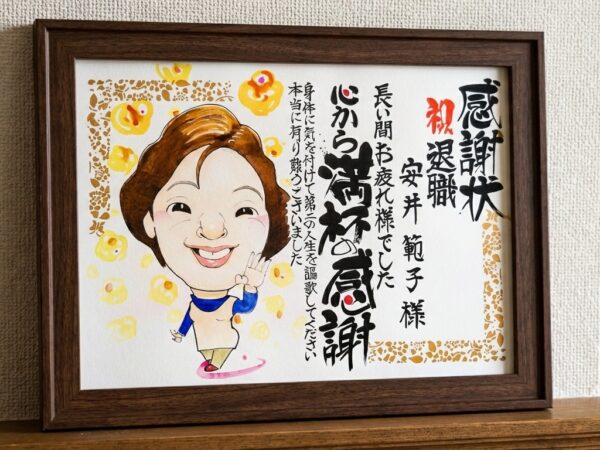 感謝状
祝 退職
安井 範子 様
長い間お疲れ様でした
心から満杯の感謝
身体に気を付けて第二の人生を謳歌してください
本当に有り難うございました